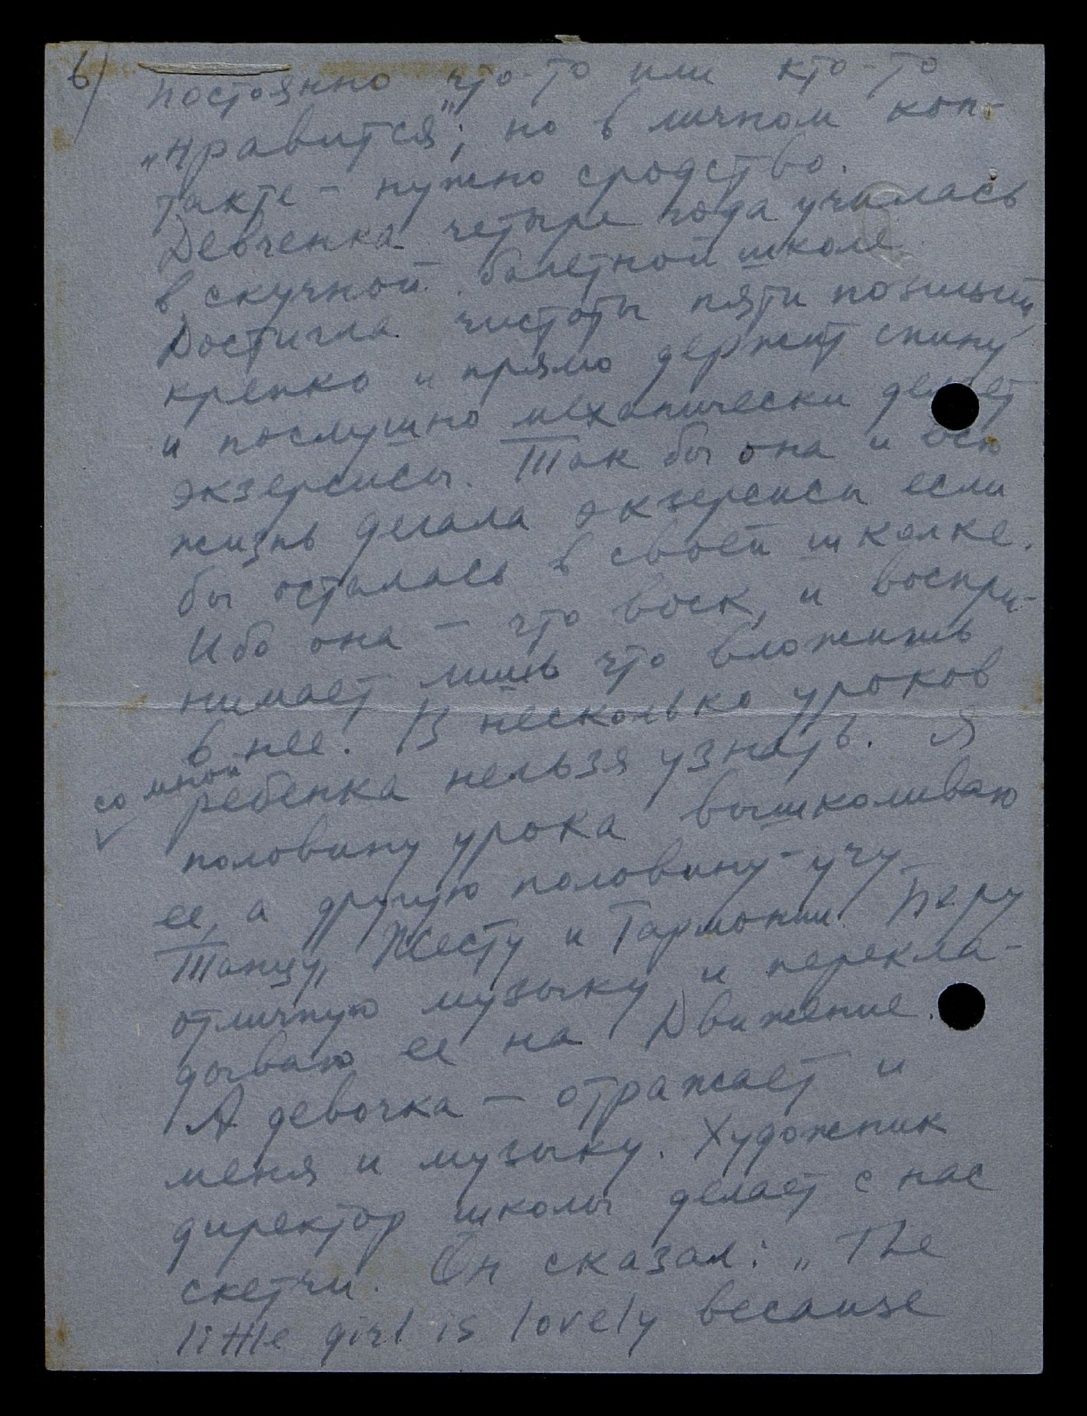 6)
постоянно что-то или кто-то
„нравится"; но в личном кон-
такте - нужно сродство.
Девченка четыре года училась
в скучной балетной школе.
Достигла чистоты пяти позиций,
крепко и прямо держит спину
и послушно механически делает
экзерсисы. Так бы она и всю
жизнь делала экзерсисы если
бы осталась в своей школке.
Ибо она - что воск, и воспри-
нимает лишь что вложишь
в нее. В несколько уроков
со мной
ребенка нельзя узнать. Я
половину урока вышколиваю
ее, а другую половину - учу
Танцу, Жесту и Гармонии. Беру
отличную музыку и перекла-
дываю ее на Движение.
А девочка - отражает и
меня и музыку. Художник
директор школы делает с нас
скетчи. Он сказал: „The
little girl is lovely because